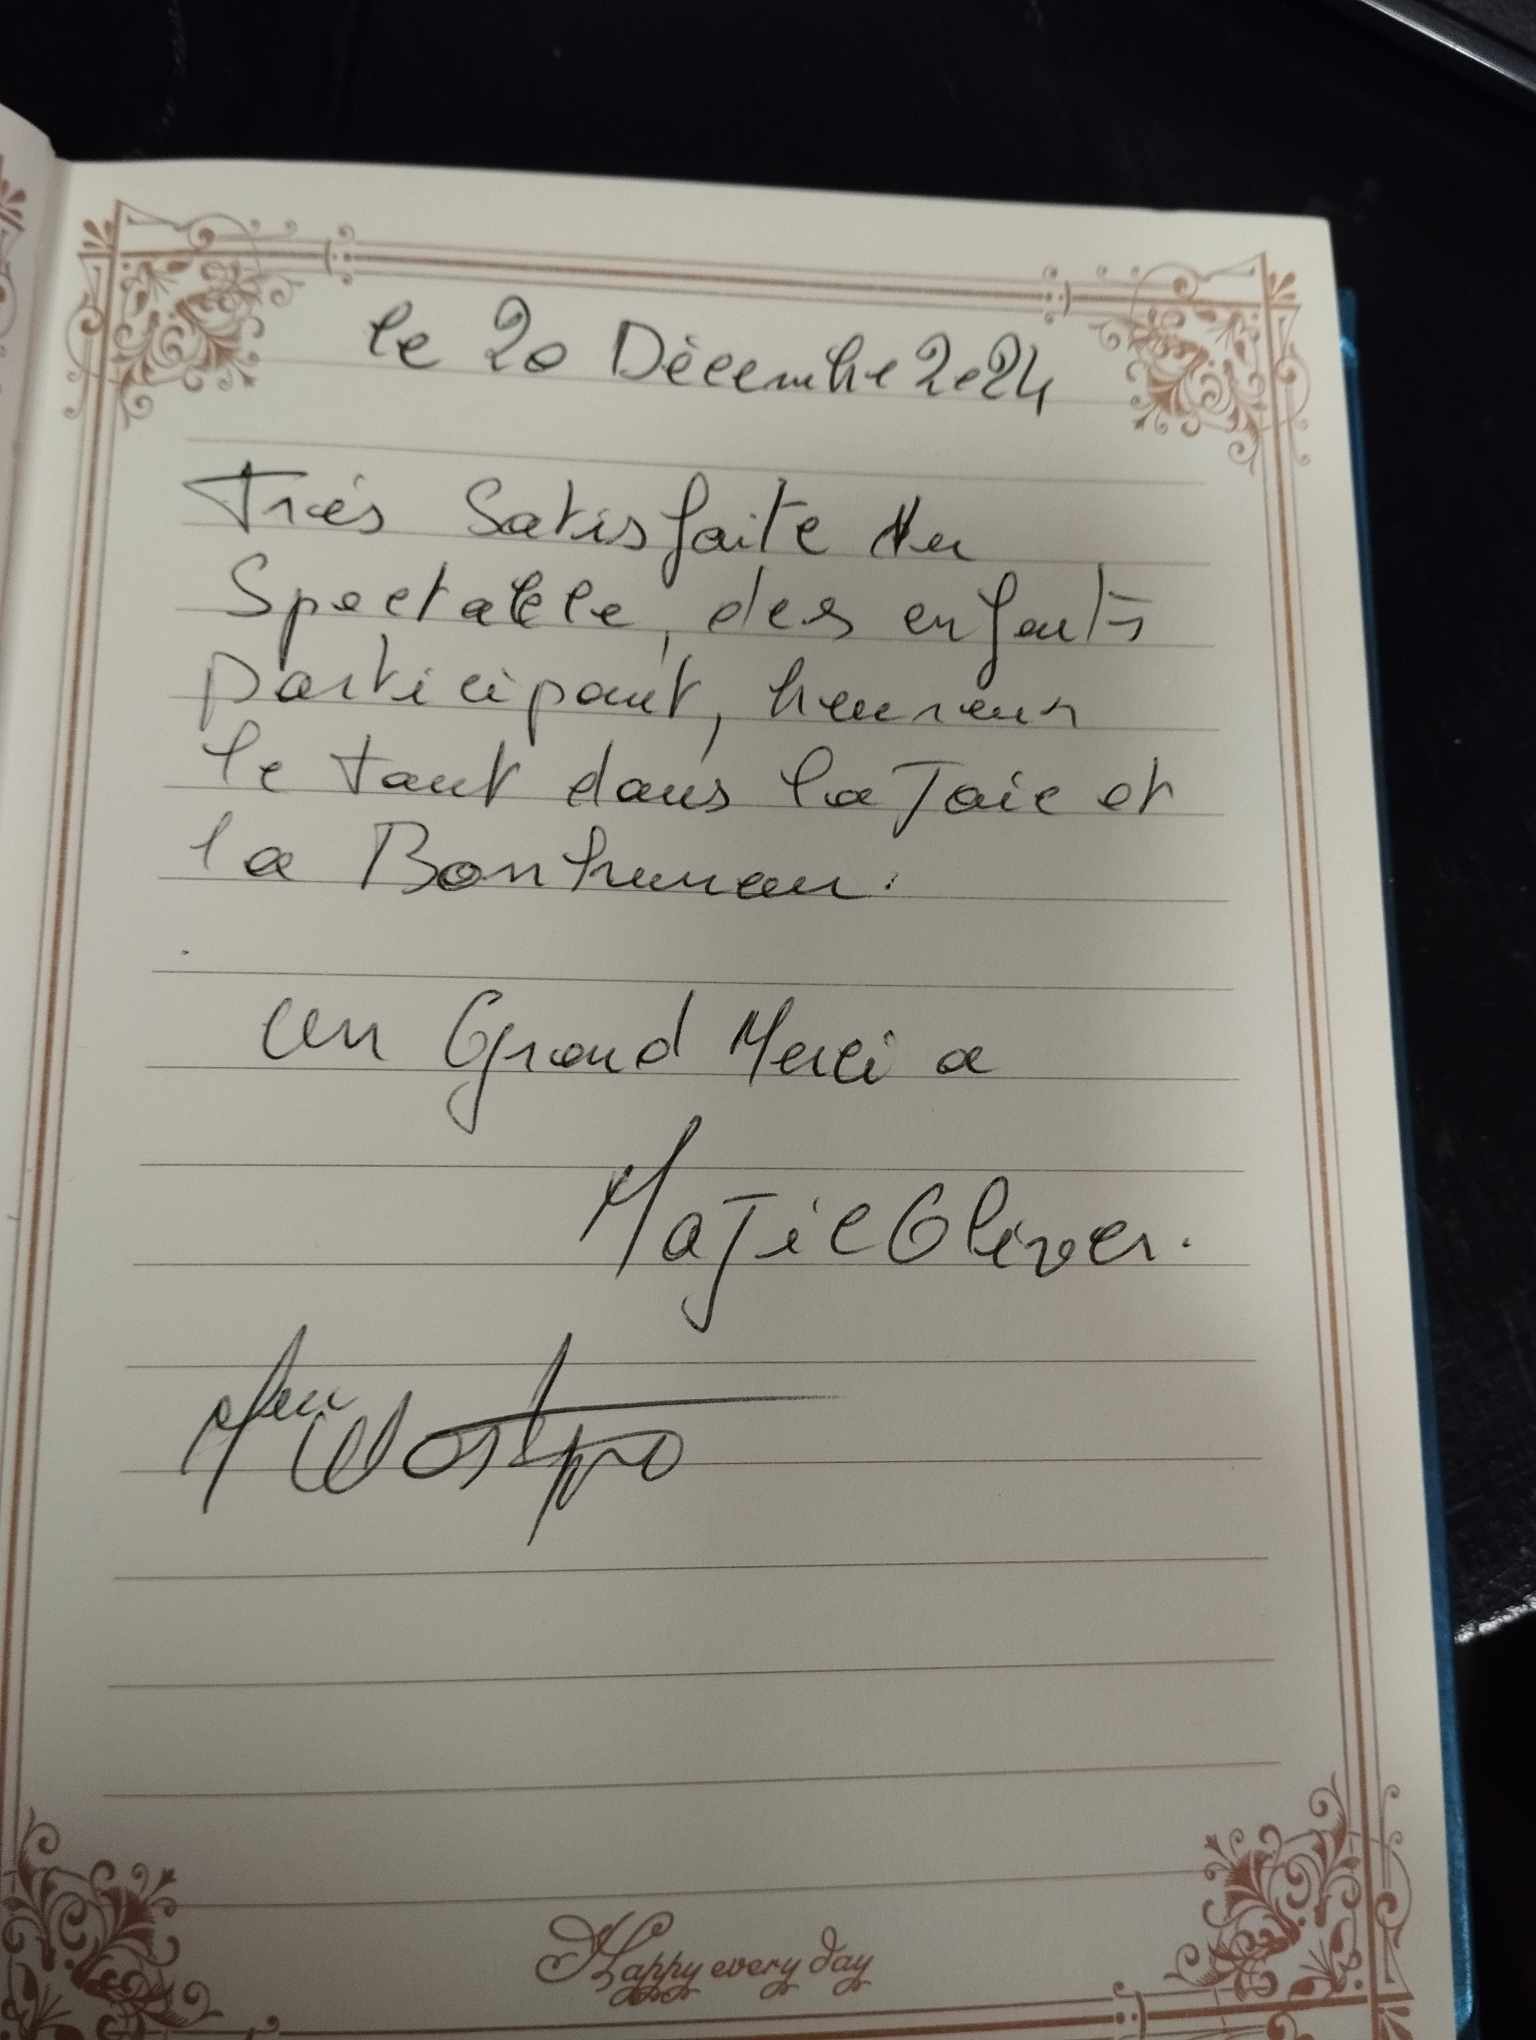 le 20 Décembre 2024
Très Satisfaite du
Spectacle, des enfants
participant, heureux
le tout dans la Joie et
la Bonhumeur.
un Grand Merci a
MaJic Oliver.
Happy every day